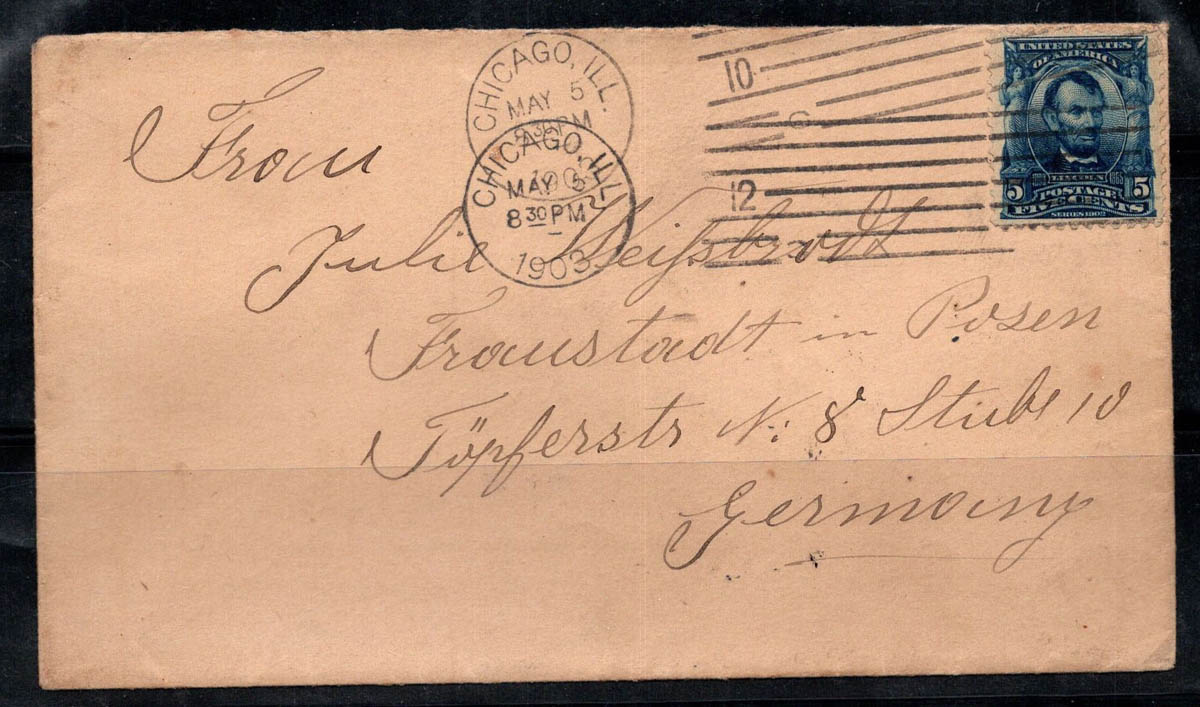 CHICAGO, ILL.
MAY 5
8 30 PM
CHICAGO, ILL.
MAY 5
8 30 PM
1903
10
12
UNITED STATES
OF AMERICA
1809 LINCOLN 1865
5 POSTAGE 5
FIVE CENTS
SERIES 1902
Frau
Julie Weißbrodt
Fraustadt in Posen
Töpferstr N: 8 Stube 10
Germany